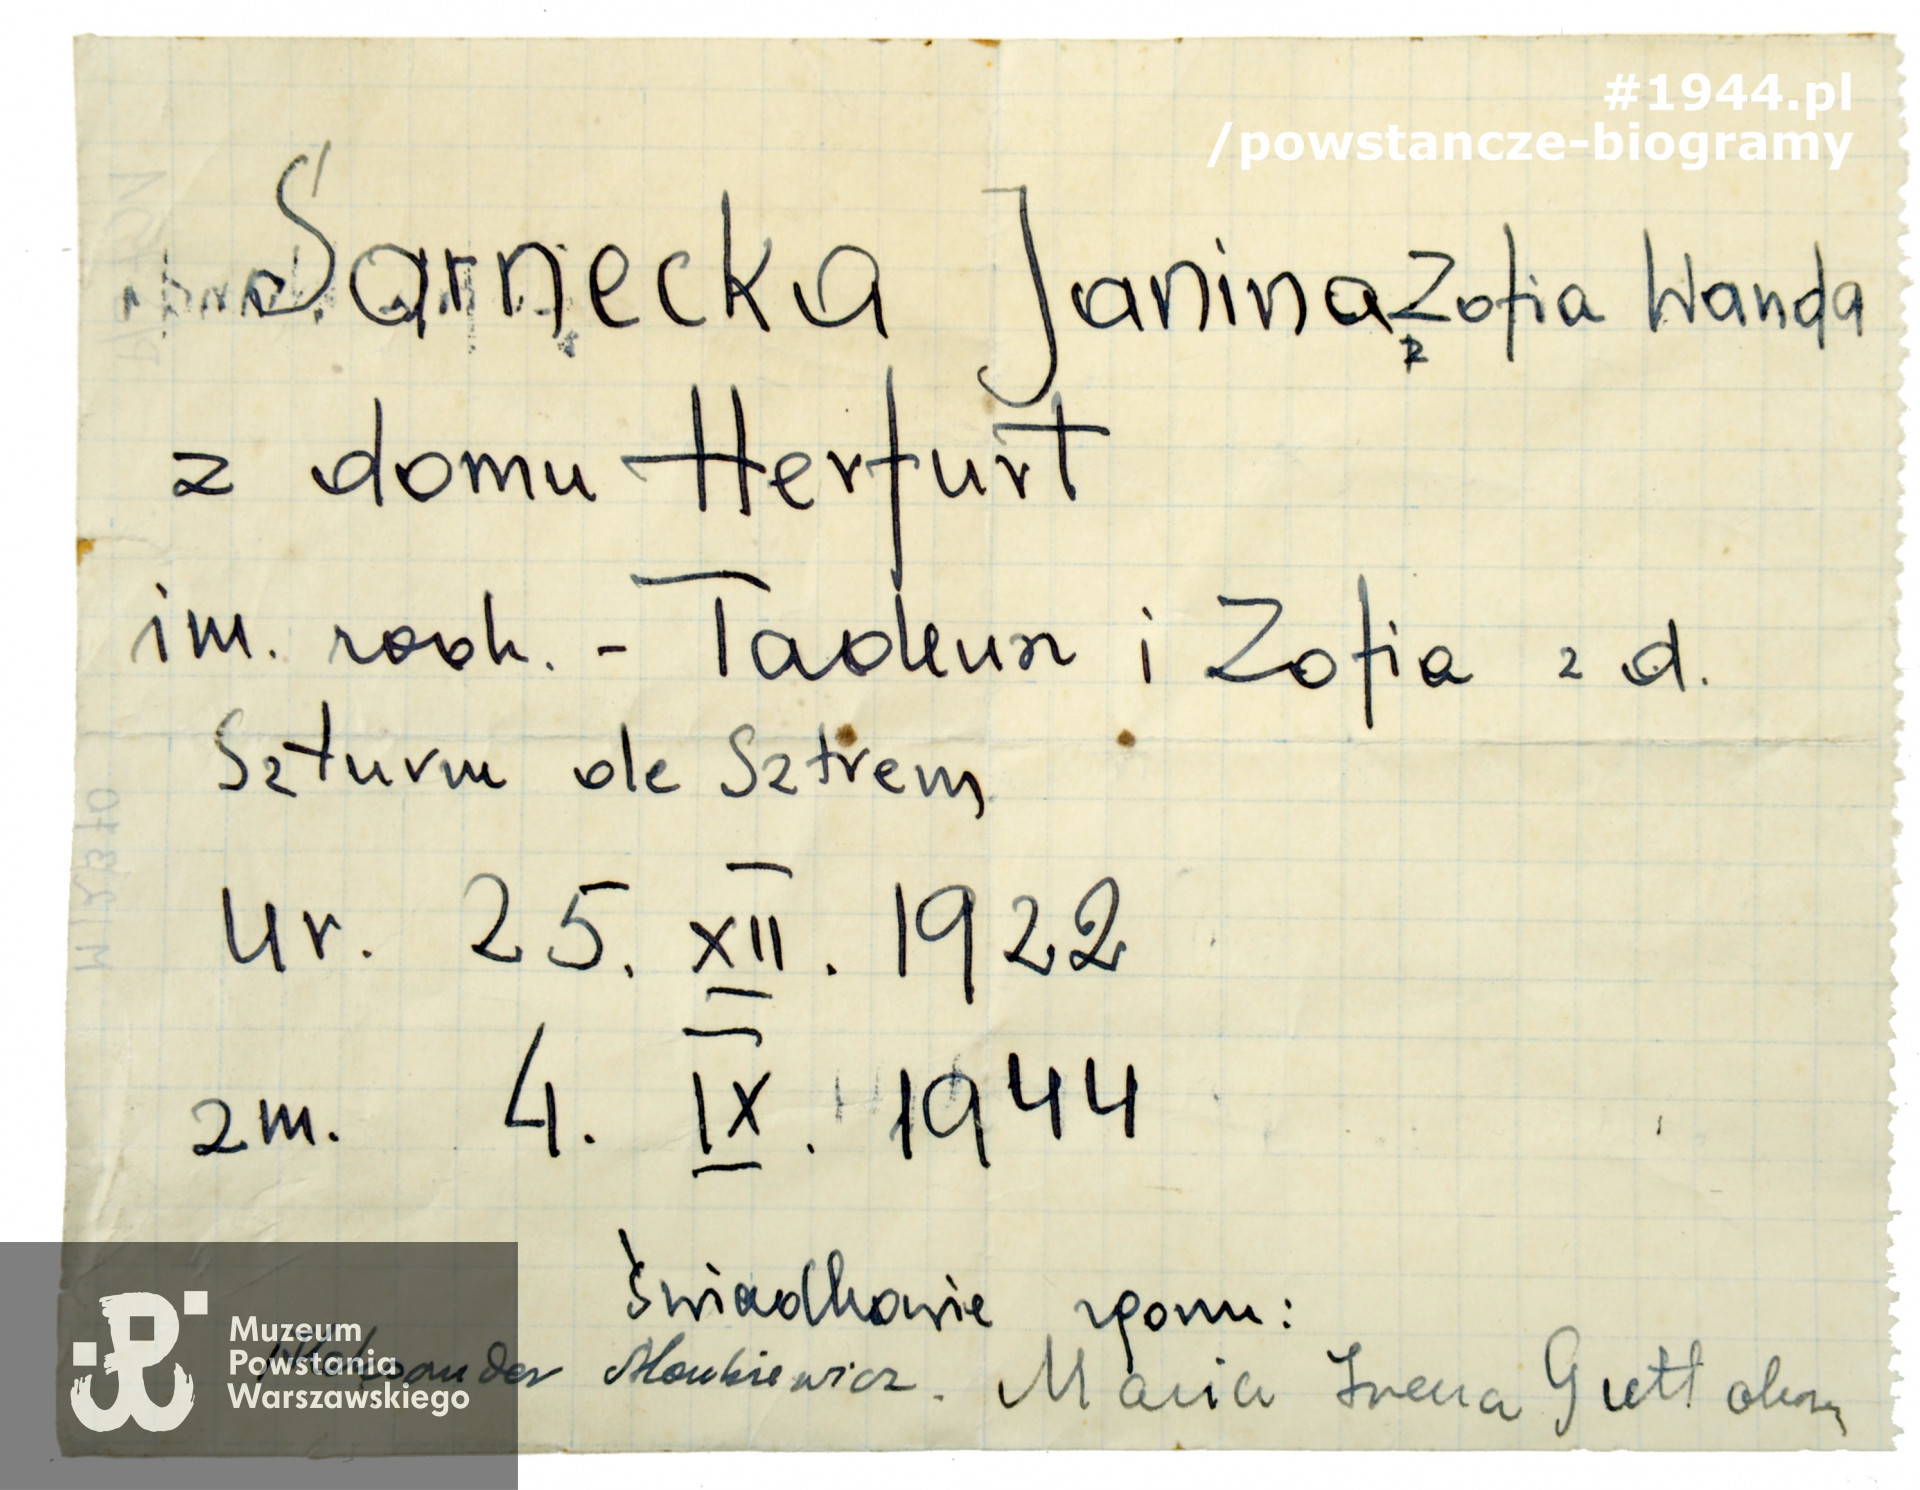 #1944.pl
/powstancze-biogramy
Sarnecka Janina Zofia Wanda
2
z domu Herfurt
im. rodz. - Tadeusz i Zofia z d.
Szturm de Sztrem
ur. 25. XII. 1922
zm. 4. IX. 1944
Świadkowie zgonu:
Aleksander Maria Irena
Muzeum
Powstania
Warszawskiego